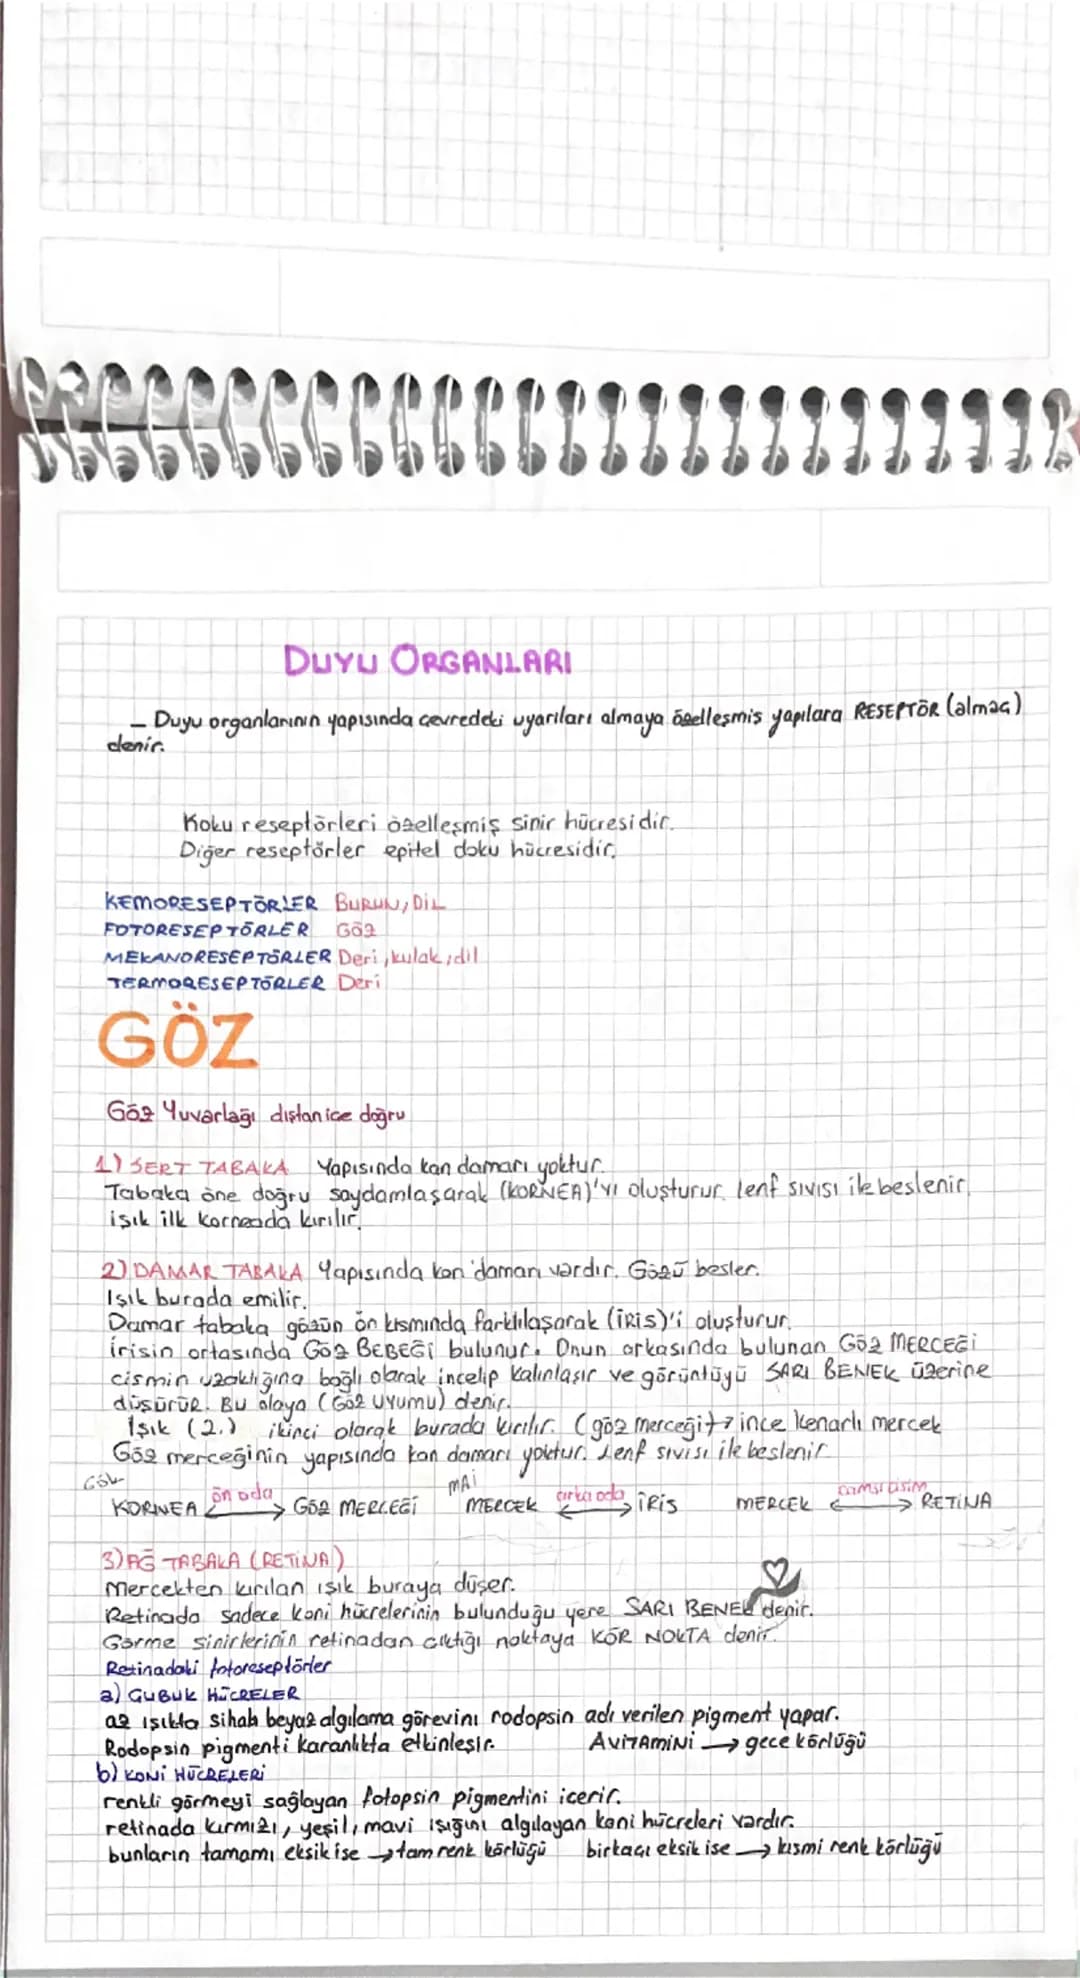 DUYU ORGANLARI
– Duyu organlarının yapısında çevredeki uyarıları almaya özelleşmiş yapılara RESEPTÖR (almaç)
denir.
Koku reseptörleri özelleşmiş sinir hücresidir.
Diğer reseptörler epitel doku hücresidir.
KEMORESEPTÖRLER BURUN, DİL
FOTORESEPTÖRLER GÖZ
MEKANORESEPTÖRLER Deri, kulak, dil
TERMORESEPTÖRLER Deri
GÖZ
Göz Yuvarlağı dıştan içe doğru
1) SERT TABAKA Yapısında kan damarı yoktur.
Tabaka öne doğru saydamlaşarak (KORNEA)'yı oluşturur. lenf sıvısı ile beslenir.
ışık ilk korneada kırılır.
2) DAMAR TABAKA Yapısında kan damarı vardır. Gözü besler.
Işık burada emilir.
Damar tabaka gözün ön kısmında farklılaşarak (İRİS)'i oluşturur.
İrisin ortasında Göz BEBEĞİ bulunur. Onun arkasında bulunan GÖZ MERCEĞİ
cismin uzaklığına bağlı olarak incelip kalınlaşır ve görüntüyü SARI BENEK üzerine
düşürür. Bu olaya (GÖZ UYUMU) denir.
Işık (2.) ikinci olarak burada kırılır. (göz merceği → ince kenarlı mercek
Göz merceğinin yapısında kan damarı yoktur. Lenf sıvısı ile beslenir
KORNEA ön oda ↔ GÖZ MERCEĞİ MERCEK arka oda ↔ İRİS MERCEK camsı cisim ↔ RETİNA
3) AĞ TABAKA (RETİNA)
Mercekten kırılan ışık buraya düşer.
Retinada sadece koni hücrelerinin bulunduğu yere SARI BENEK denir.
Görme sinirlerinin retinadan çıktığı noktaya KÖR NOKTA denir.
Retinadaki fotoreseptörler
a) ÇUBUK HÜCRELER
az ışıkta sihah beyaz algılama görevini rodopsin adı verilen pigment yapar.
Rodopsin pigmenti karanlıkta etkinleşir. A VİTAMİNİ → gece körlüğü
b) KONİ HÜCRELERİ
renkli görmeyi sağlayan fotopsin pigmentini içerir.
retinada kırmızı, yeşil, mavi ışığını algılayan koni hücreleri vardır.
bunların tamamı eksik ise → tam renk körlüğü birkaçı eksik ise → kısmi renk körlüğü